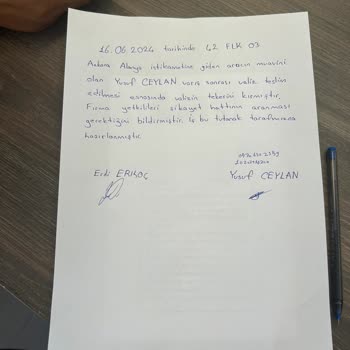 16.06.2024 tarihinde 42 FLK 03
Ankara Alanya istikametine giden aracın muavini
olan Yusuf CEYLAN varış sonrası valiz teslim
edilmesi esnasında valizin tekerini kırmıştır.
Firma yetkilileri şikayet hattının aranması
gerektiğini bildirmiştir. İş bu tutanak tarafımızca
hazırlanmıştır.
Yusuf CEYLAN